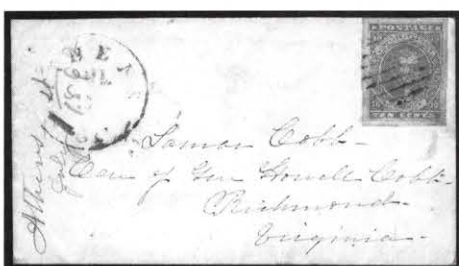 Athens
July
POSTAGE
TEN CENTS
Lamar Cobb
Care of Gen Howell Cobb
Richmond
Virginia